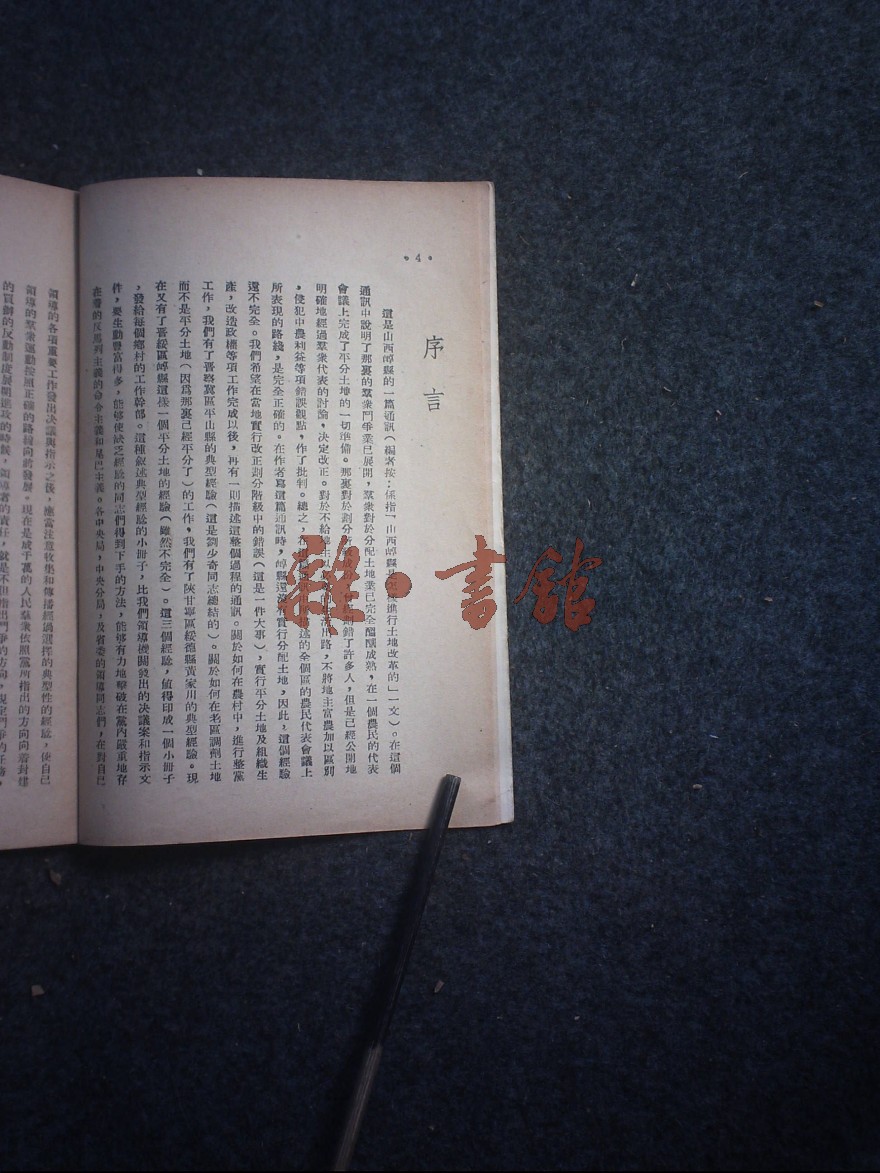 ·4·
序言
這是山西崞縣的一篇通訊(編者按:係指「山西崞縣是 進行土地改革的」一文)。在這個
通訊中說明了那裏的羣衆鬥爭業已展開,羣衆對於分配土地業已完全醞釀成熟,在一個農民的代表
會議上完成了平分土地的一切準備。那裏對於劃分 錯了許多人,但是已經公開地
明確地經過羣衆代表的討論,決定改正。對於不給地主以 出路,不將地主富農加以區別
,侵犯中農利益等項錯誤觀點,作了批判。總之,在 的全個區的農民代表會議上
所表現的路綫,是完全正確的。在作者寫這篇通訊時,崞縣還 實行分配土地,因此,這個經驗
還不完全。我們希望在當地實行改正劃分階級中的錯誤(這是一件大事),實行平分土地及組織生
產,改造政權等項工作完成以後,再有一則描述這整個過程的通訊。關於如何在農村中,進行整黨
工作,我們有了晋察冀區平山縣的典型經驗(這是劉少奇同志總結的)。關於如何在老區調劑土地
而不是平分土地(因爲那裏已經平分了)的工作,我們有了陝甘寧區綏德縣黃家川的典型經驗。現
在又有了晋綏區崞縣這樣一個平分土地的經驗(雖然不完全)。這三個經驗,值得印成一個小冊子
,發給每個鄉村的工作幹部。這種叙述典型經驗的小冊子,比我們領導機關發出的決議案和指示文
件,要生動豐富得多,能够使缺乏經驗的同志們得到下手的方法,能够有力地擊破在黨內嚴重地存
在着的反馬列主義的命令主義和尾巴主義。各中央局,中央分局,及省委的領導同志們,在對自己
領導的各項重要工作發出決議與指示之後,應當注意收集和傳播經過選擇的典型性的經驗,使自己
領導的羣衆運動按照正確的路綫向前發展。現在是成千萬的人民羣衆依照黨所指出的方向向着封建
的買辦的反動制度展開進攻的時候,領導者的責任,就是不但指出鬥爭的方向,規定鬥爭的任務,
雜·書館